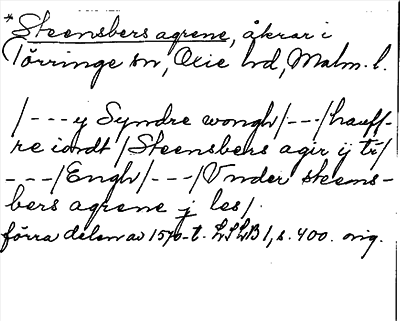 *Steensbers agrene, åkrar i
Törringe sn, Oxie hd, Malm. l.
/---y Syndre wongh/---/hauff-
re iordt/Steensbers agir ij tr/
---/Engh/---/Vnder steens-
bers agrene j les/.
förra delen av 1570-t. LSLB 1, s. 400. orig.